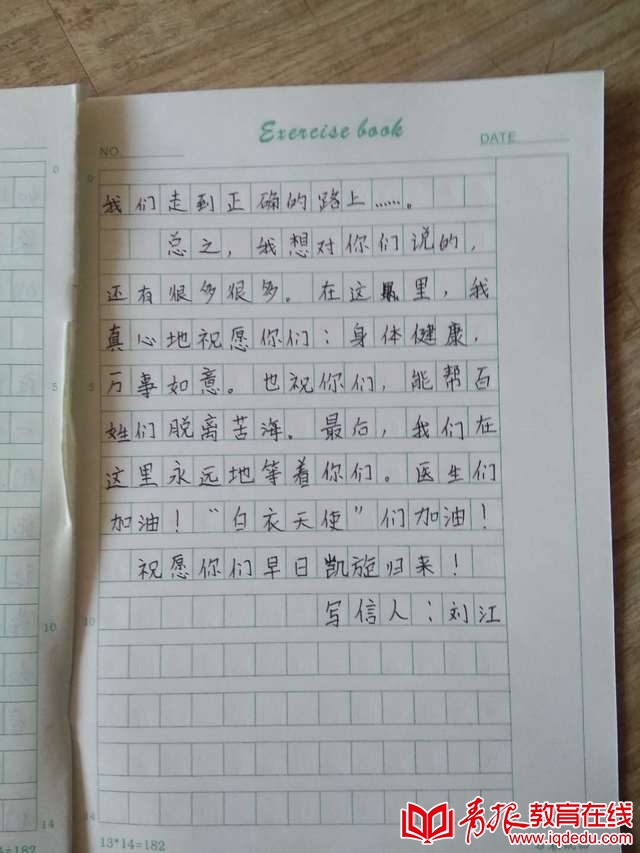 Exercise book
NO.
DATE
0
0
我们走到正确的路上……。
总之，我想对你们说的，
还有很多很多。在这里，我
真心地祝愿你们：身体健康，
5
5
万事如意。也祝你们，能帮百
姓们脱离苦海。最后，我们在
这里永远地等着你们。医生们
加油！“白衣天使”们加油！
祝愿你们早日凯旋归来！
10
10
写信人：刘江
14
14
4=182
13*14=182
青报教育在线
www.iqdedu.com